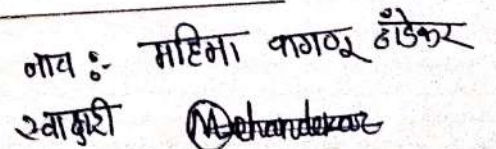 नाव :- महिमा वागणू हाँडेकर
स्वाक्षरी